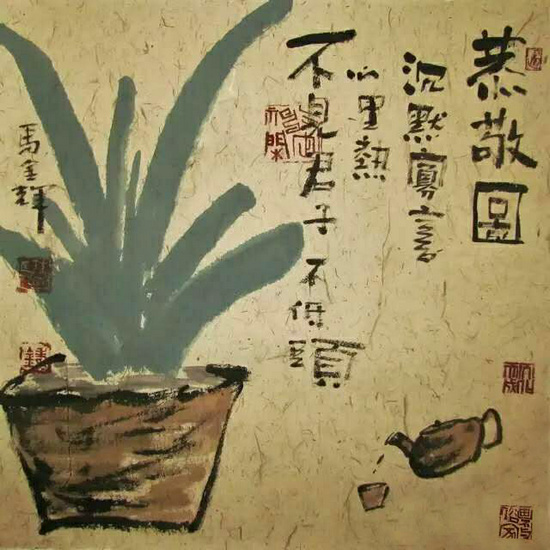 恭敬圖
沉默寡言
心里熱
不見君子不低頭
馬金輝